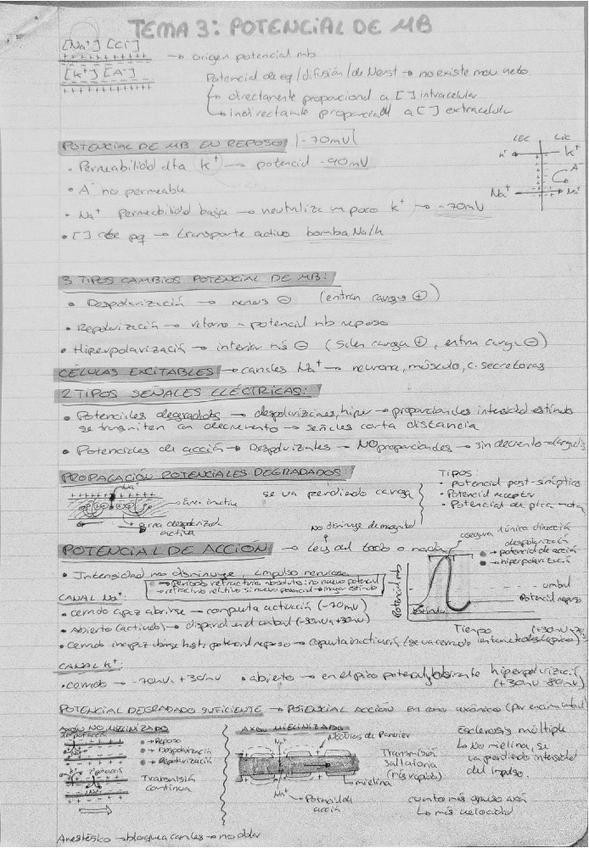 TEMA 3: POTENCIAL DE MB
[Na+] [Cl-] → origen potencial mb
[K+] [A-]
Potencial de eq/difusión/de Nerst → no existe mov neto
→ directamente proporcional a [ ] intracelular
→ indirectamente proporcional a [ ] extracelular
POTENCIAL DE MB EN REPOSO |-70mV|
LEC LIC
• Permeabilidad alta K+ → potencial -90mV
K+ K+
• A- no permeable
A-
• Na+ Permeabilidad baja → neutraliza un poco K+ → -70mV
Na+ Na+
→ transporte activo bomba Na/K
3 TIPOS CAMBIOS POTENCIAL DE MB:
• Despolarización → menos ⊖ (entran cargas ⊕)
• Repolarización → retorno a potencial mb reposo
• Hiperpolarización → interior más ⊖ (salen carga ⊕, entra carg ⊖)
CÉLULAS EXCITABLES → canales Na+ → neurona, músculo, c. secretoras
2 TIPOS SEÑALES ELÉCTRICAS:
• Potenciales degradados → despolarizaciones, hiper → proporcionales intensidad estímulo
se transmiten con decremento → señales corta distancia
• Potenciales de acción → Despolarizantes → NO proporcionales → sin decremento →
PROPAGACIÓN POTENCIALES DEGRADADOS:
Na+
Área inactiva
área despolarizada
activa
se va perdiendo carga
Tipos:
• potencial post-sináptico
• Potencial receptor
• Potencial de placa motora
No disminuye de magnitud
POTENCIAL DE ACCIÓN → Ley del todo o nada
asegura única dirección
despolarización
→ potencial de acción
→ hiperpolarización
umbral
Potencial reposo
Potencial mb
Estímulo
Tiempo
• Intensidad no disminuye, impulso nervioso
→ Periodo refractario absoluto: no nuevo potencial
→ refractario relativo: si nuevo potencial → mayor estímulo
CANAL Na+:
• cerrado capaz abrirse → compuerta activación (-70mV)
• Abierto (activado) → disparo en el umbral (-50mV a +30mV)
• cerrado incapaz abrirse hasta potencial reposo → compuerta inactivación
CANAL K+:
• cerrado → -70mV a +30mV • abierto → en el pico potencial, durante hiperpolarización
(+30mV -80mV)
POTENCIAL DEGRADADO SUFICIENTE → POTENCIAL ACCIÓN en cono axónico (por encima umbral)
AXÓN NO MIELINIZADO
→ Reposo
→ Despolarización
→ Repolarización
Transmisión
continua
AXÓN MIELINIZADO
Nódulos de Ranvier
Na+
Transmisión
saltatoria
(más rápida)
mielina
Na+
Potencial de
acción
Esclerosis múltiple
↳ No mielina, se
va perdiendo intensidad
del impulso.
cuanto más grueso axón
↳ más velocidad
Anestésico → bloquea canales → no dolor